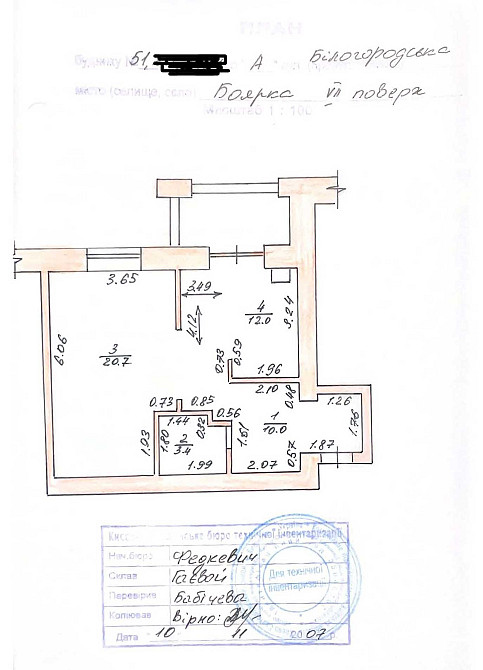 ПЛАН
51, А Білогородська
Боярка VII поверх
Масштаб 1 : 100
3.65
3.49
4
12.0
3.24
4.12
6.06
3
20.7
0.73 0.59
1.96
2.10
0.48
0.73 0.85
1.26
1.44 0.82 0.56
1
10.0
1.76
1.93 1.80
2
3.4
1.61
0.57 1.87
1.99 2.07
бюро технічної інвентаризації
Нач.бюро Федкевич
Склав Гаєвой
Перевірив Бабічева
Копіював Вірно:
Дата 10 11 2007 р
Для технічної
інвентаризації